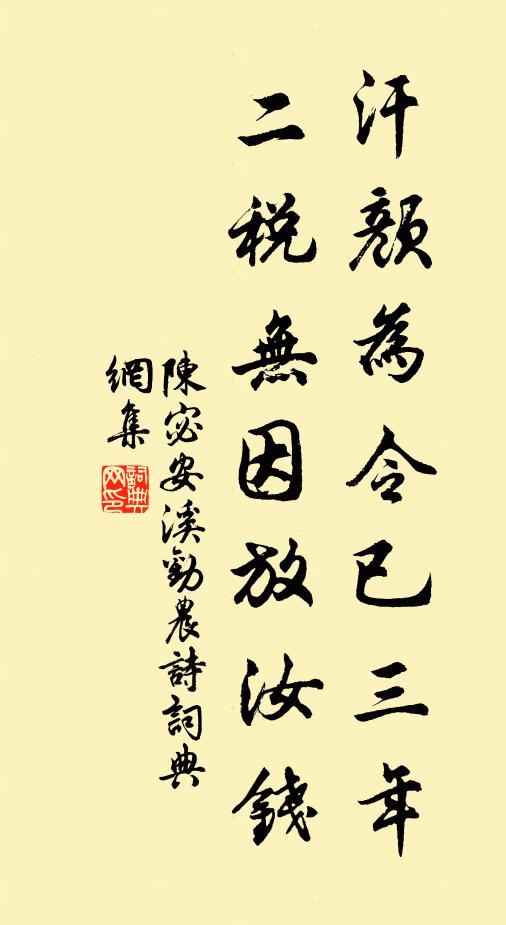 汗顏為令已三年
二稅無因放汝錢
陳宓安溪勸農詩詞典
網集
詞典
网印